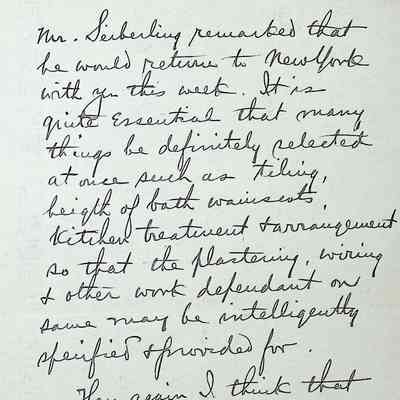 Mr. Seiberling remarked that
he would return to New York
with yu this week. It is
quite essential that many
things be definitely selected
at once such as tiling,
heigth of bath wainscots,
kitchen treatment & arrangement
so that the plastering, wiring
& other work dependant on
same may be intelligently
specified & provided for.
Then again I think that